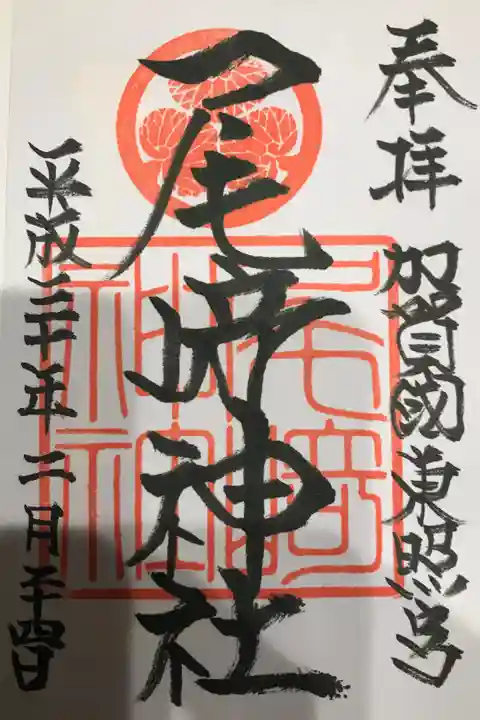 奉拝
加賀國東照宮
尾﨑神社
平成三十年二月二十四日